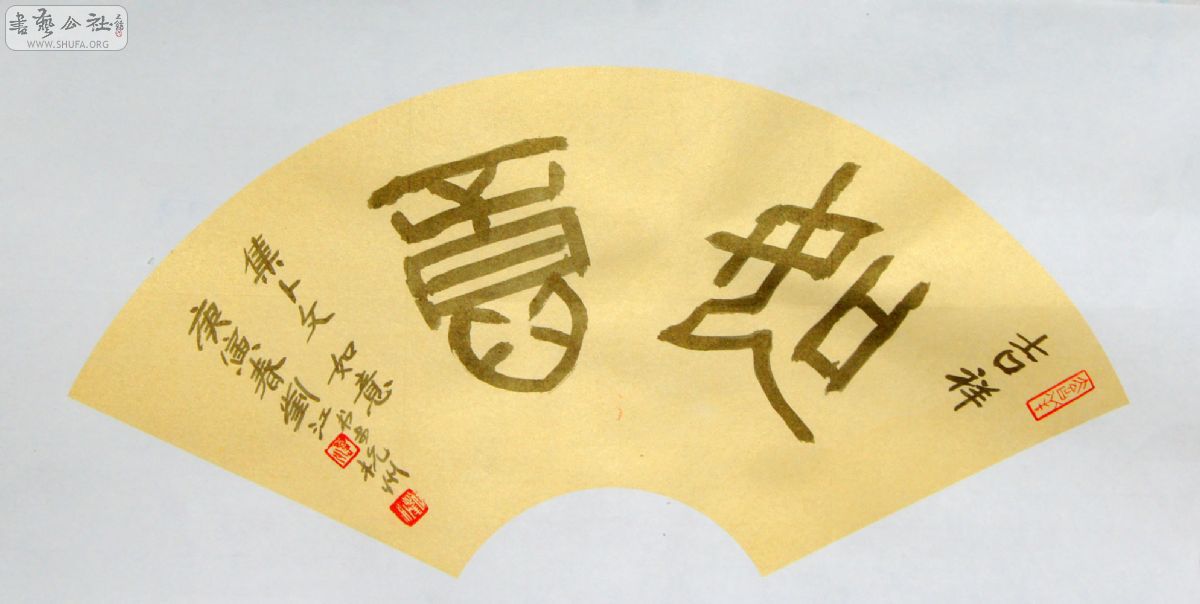 書藝公社
WWW.SHUFA.ORG
吉祥
如意
集卜文如意
庚寅春劉江
杭州